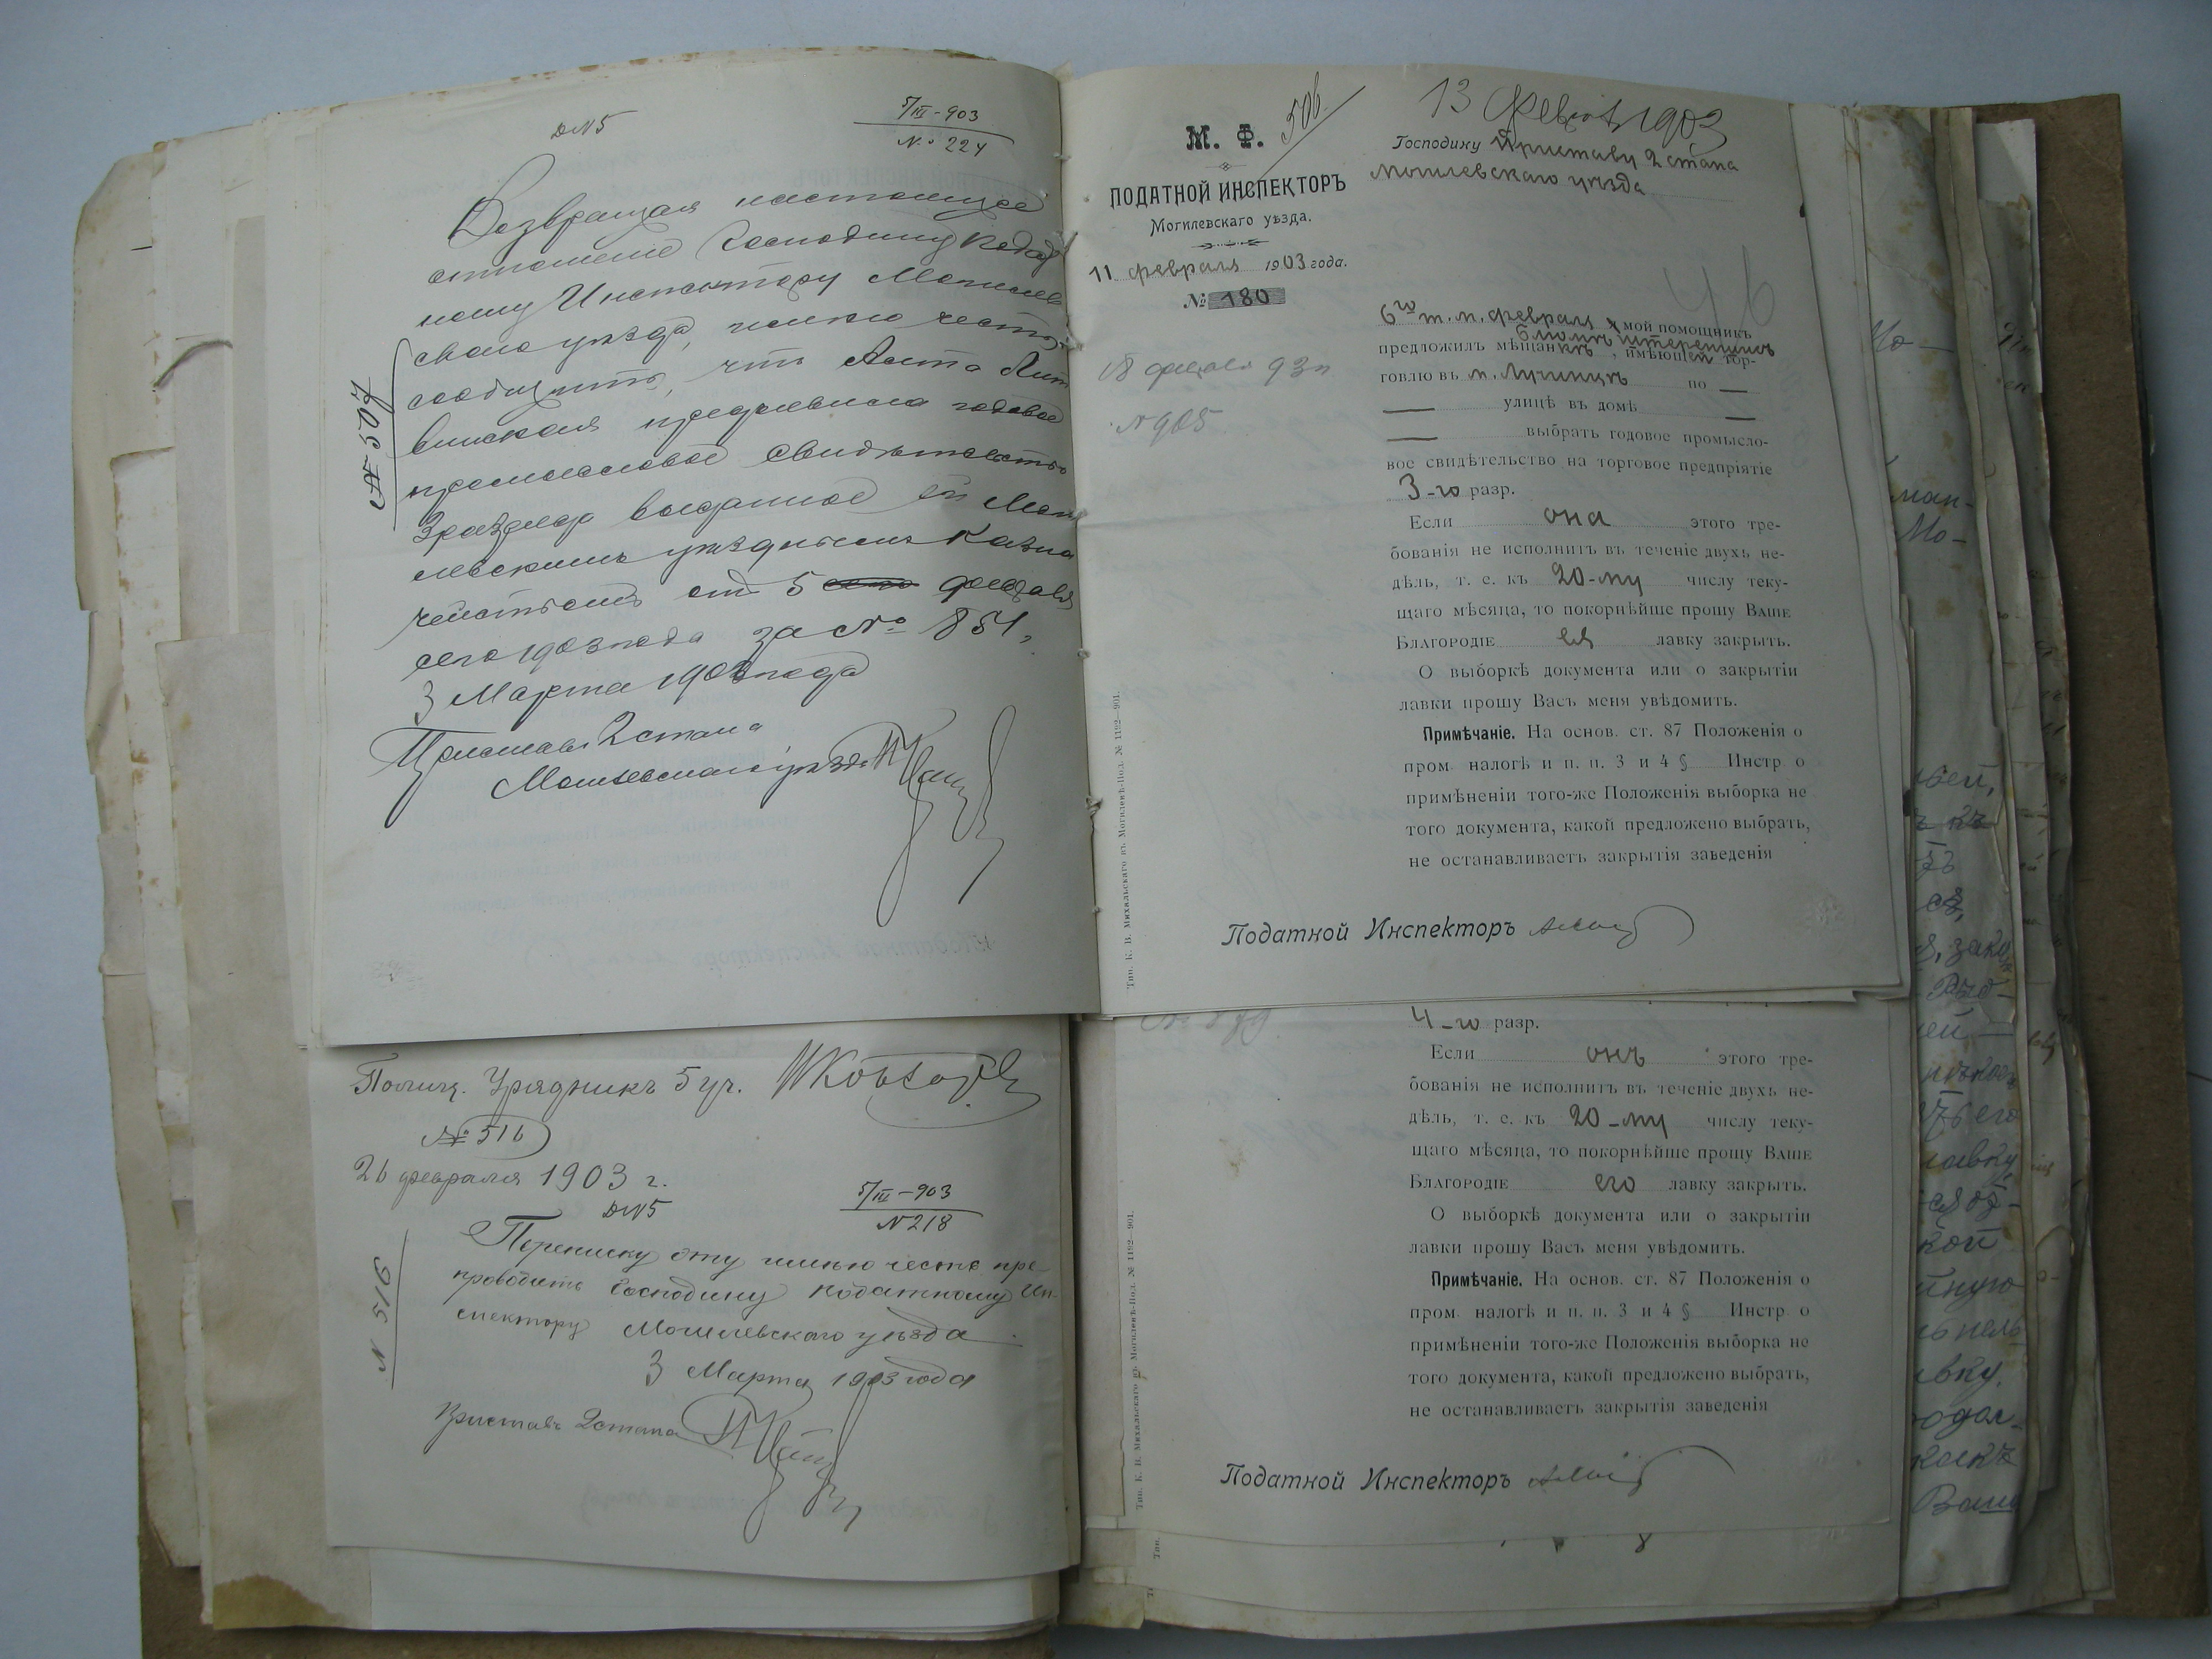 DN5
5/III - 903
№ 224
Возвращая настоящее
отношеніе Господину Подат
ному Инспектору Могилев
скаго уѣзда, имѣю честь
сообщить, что
винская предъявила годовое
промысловое свидѣтельство
3 разряда выданное ей Моги
левскимъ уѣзднымъ Казна
чействомъ отъ 5 февраля
сего 1903 года за № 851,
3 Марта 1903 года
Приставъ 2 стана
Могилевскаго уѣзда
№ 507
Полиц. Урядникъ 5 уч.
№ 516
26 февраля 1903 г.
DN5
5/III - 903
N 218
Переписку эту имѣю честь пре-
проводить Господину Податному Ин-
спектору Могилевскаго уѣзда
3 Марта 1903 года
Приставъ 2 стана
N 516
506
13 Февр 1903
М. Ф.
ПОДАТНОЙ ИНСПЕКТОРЪ
Могилевскаго уѣзда.
11 февраля 1903 года.
№ 180
18 февраля 93 г
N 965
Господину Приставу 2 стана
Могилевскаго уѣзда
46
6го т. м. февраля мой помощникъ
предложилъ мѣщанкѣ , имѣющей тор-
говлю въ м. Лучинцѣ по —
— улицѣ въ домѣ —
— выбрать годовое промысло-
вое свидѣтельство на торговое предпріятіе
3-го разр.
Если она этого тре-
бованія не исполнитъ въ теченіе двухъ не-
дѣль, т. е. къ 20-му числу теку-
щаго мѣсяца, то покорнѣйше прошу ВАШЕ
БЛАГОРОДІЕ ея лавку закрыть.
О выборкѣ документа или о закрытіи
лавки прошу Васъ меня увѣдомить.
Примѣчаніе. На основ. ст. 87 Положенія о
пром. налогѣ и п. п. 3 и 4 § Инстр. о
примѣненіи того-же Положенія выборка не
того документа, какой предложено выбрать,
не останавливаетъ закрытія заведенія
Податной Инспекторъ
Тип. К. В. Михальскаго въ Могилевѣ-Под. № 1192—901.
4-го разр.
Если онъ этого тре-
бованія не исполнитъ въ теченіе двухъ не-
дѣль, т. е. къ 20-му числу теку-
щаго мѣсяца, то покорнѣйше прошу ВАШЕ
БЛАГОРОДІЕ его лавку закрыть.
О выборкѣ документа или о закрытіи
лавки прошу Васъ меня увѣдомить.
Примѣчаніе. На основ. ст. 87 Положенія о
пром. налогѣ и п. п. 3 и 4 § Инстр. о
примѣненіи того-же Положенія выборка не
того документа, какой предложено выбрать,
не останавливаетъ закрытія заведенія
Податной Инспекторъ
Тип. К. В. Михальскаго въ Могилевѣ-Под. № 1192—901.